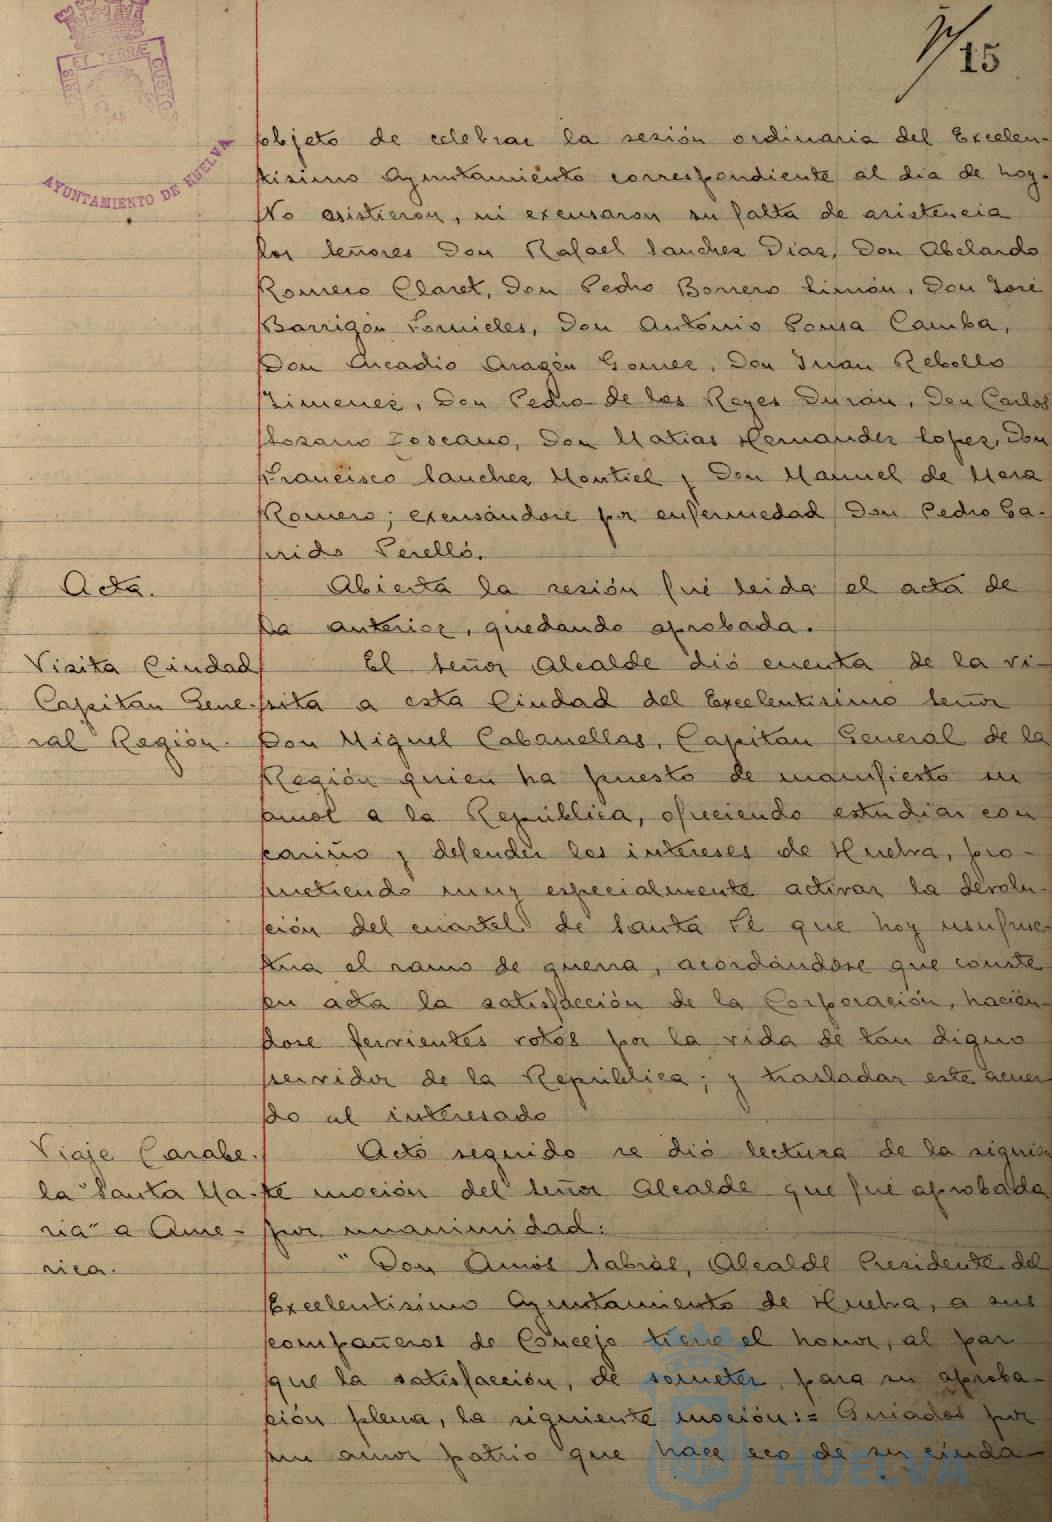 15
SIBUS ET TERRÆ CUSTO
AYUNTAMIENTO DE HUELVA
objeto de celebrar la sesión ordinaria del Excelen-
tisimo Ayuntamiento correspondiente al dia de hoy.
No asistieron, ni excusaron su falta de asistencia
los señores Don Rafael Sanchez Diaz, Don Abelardo
Romero Claret, Don Pedro Borrero Limón, Don José
Barrigón Fornieles, Don Antonio Ponsa Camba,
Don Arcadio Aragón Gomez, Don Juan Rebollo
Jimenez, Don Pedro de los Reyes Durán, Don Carlos
Lozano Toscano, Don Matias Hernandez Lopez, Don
Francisco Sanchez Montiel y Don Manuel de Mora
Romero; excusándose por enfermedad Don Pedro Ga-
rrido Perelló.
Acta.
Abierta la sesión fué leida el acta de
la anterior, quedando aprobada.
Visita Ciudad
Capitan Gene-
ral Región.
El señor Alcalde dió cuenta de la vi-
sita a esta Ciudad del Excelentisimo señor
Don Miguel Cabanellas, Capitan General de la
Región quien ha puesto de manifiesto su
amor a la República, ofreciendo estudiar con
cariño y defender los intereses de Huelva, pro-
metiendo muy especialmente activar la devolu-
ción del cuartel de Santa Fé que hoy usufruc-
tua el ramo de guerra, acordándose que conste
en acta la satisfacción de la Corporación, hacién-
dose fervientes votos por la vida de tan digno
servidor de la República; y trasladar este acuer-
do al interesado
Viaje Carabe-
la "Santa Ma-
ria" a Ame-
rica.
Acto seguido se dió lectura de la siguien
te moción del señor Alcalde que fué aprobada
por unanimidad:
"Don Amós Sabrás, Alcalde Presidente del
Excelentisimo Ayuntamiento de Huelva, a sus
compañeros de Concejo tiene el honor, al par
que la satisfacción, de someter, para su aproba-
ción plena, la siguiente moción:= Guiados por
un amor patrio que hace eco de su ciuda-
HUELVA